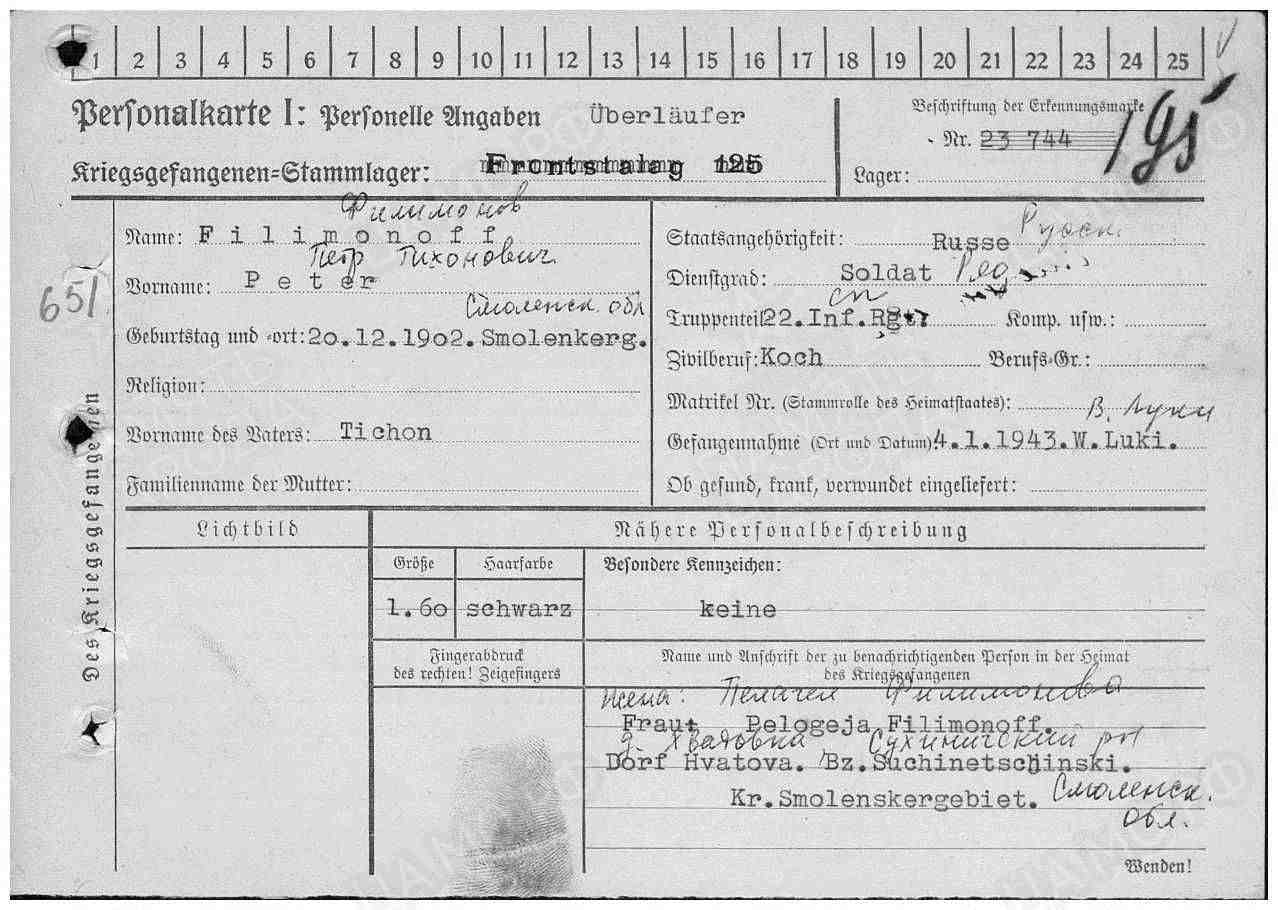 1 2 3 4 5 6 7 8 9 10 11 12 13 14 15 16 17 18 19 20 21 22 23 24 25
Personalkarte I: Personelle Angaben Überläufer
Beschriftung der Erkennungsmarke
Nr. 23 744
Kriegsgefangenen-Stammlager: Frontstalag 125
Lager:
Des Kriegsgefangenen
651
Филимонов
Name: Filimonoff
Петр Тихонович
Vorname: Peter
Смоленск. обл
Geburtstag und -ort: 20.12.1902. Smolenkerg.
Religion:
Vorname des Vaters: Tichon
Familienname der Mutter:
Staatsangehörigkeit: Russe Русск.
Dienstgrad: Soldat
сп
Truppenteil 22.Inf.Rgt. Komp. usw.:
Zivilberuf: Koch Berufs-Gr.:
Matrikel Nr. (Stammrolle des Heimatstaates):
В. Луки
Gefangennahme (Ort und Datum) 4.1.1943. W.Luki.
Ob gesund, krank, verwundet eingeliefert:
Lichtbild
Nähere Personalbeschreibung
Größe Haarfarbe Besondere Kennzeichen:
1.60 schwarz keine
Fingerabdruck
des rechten! Zeigefingers
Name und Anschrift der zu benachrichtigenden Person in der Heimat
des Kriegsgefangenen
жена: Пелагея Филимонова
Frau Pelogeja Filimonoff.
д. Хватовка, Сухиничский рн
Dorf Hvatova. Bz.Suchinetschinski.
Kr.Smolenskergebiet. Смоленск.
обл.
Wenden!